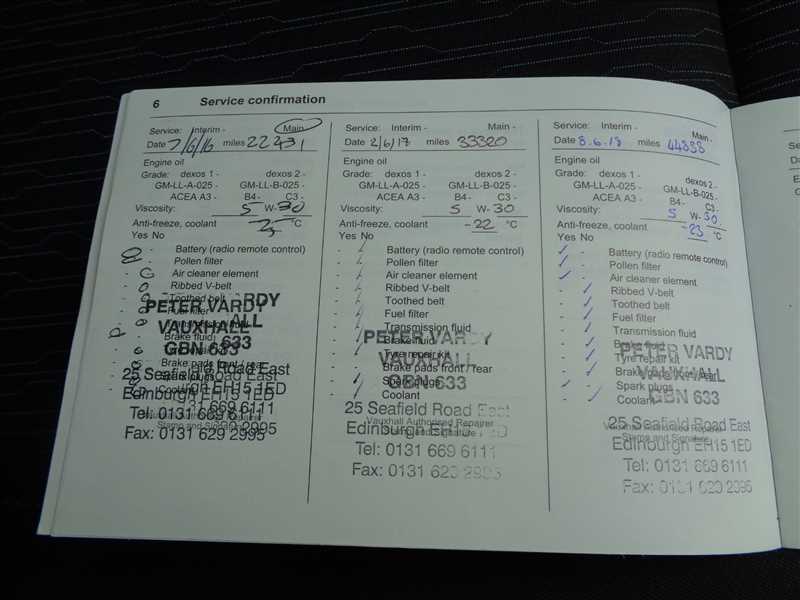 6 Service confirmation
Service: Interim - Main -
Date 7/6/16 miles 22431
Engine oil
Grade: dexos 1 - dexos 2 -
GM-LL-A-025 - GM-LL-B-025 -
ACEA A3 - B4 - C3 -
Viscosity: 5 W- 30
Anti-freeze, coolant °C
Yes No
Battery (radio remote control)
Pollen filter
Air cleaner element
Ribbed V-belt
Toothed belt
Fuel filter
Transmission fluid
Brake fluid
Tyre repair kit
Brake pads front / rear
Spark plugs
Coolant
PETER VARDY
VAUXHALL
GBN 633
25 Seafield Road East
Edinburgh EH15 1ED
Tel: 0131 669 6111
Fax: 0131 629 2995
Service: Interim - Main -
Date 2/6/17 miles 33320
Engine oil
Grade: dexos 1 - dexos 2 -
GM-LL-A-025 - GM-LL-B-025 -
ACEA A3 - B4 - C3 -
Viscosity: 5 W- 30
Anti-freeze, coolant -22 °C
Yes No
Battery (radio remote control)
Pollen filter
Air cleaner element
Ribbed V-belt
Toothed belt
Fuel filter
Transmission fluid
Brake fluid
Tyre repair kit
Brake pads front / rear
Spark plugs
Coolant
PETER VARDY
VAUXHALL
GBN 633
25 Seafield Road East
Vauxhall Authorised Repairer
Stamp and Signature
Edinburgh EH15 1ED
Tel: 0131 669 6111
Fax: 0131 629 2995
Service: Interim - Main -
Date 8.6.18 miles 44838
Engine oil
Grade: dexos 1 - dexos 2 -
GM-LL-A-025 - GM-LL-B-025 -
ACEA A3 - B4 - C3 -
Viscosity: 5 W- 30
Anti-freeze, coolant -23 °C
Yes No
Battery (radio remote control)
Pollen filter
Air cleaner element
Ribbed V-belt
Toothed belt
Fuel filter
Transmission fluid
Brake fluid
Tyre repair kit
Brake pads front / rear
Spark plugs
Coolant
PETER VARDY
VAUXHALL
GBN 633
25 Seafield Road East
Vauxhall Authorised Repairer
Stamp and Signature
Edinburgh EH15 1ED
Tel: 0131 669 6111
Fax: 0131 629 2995